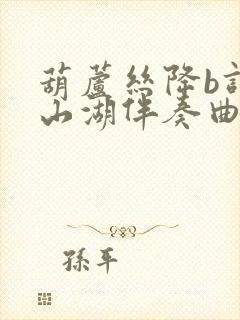 葫蘆絲降b
山湖伴奏曲
孫平